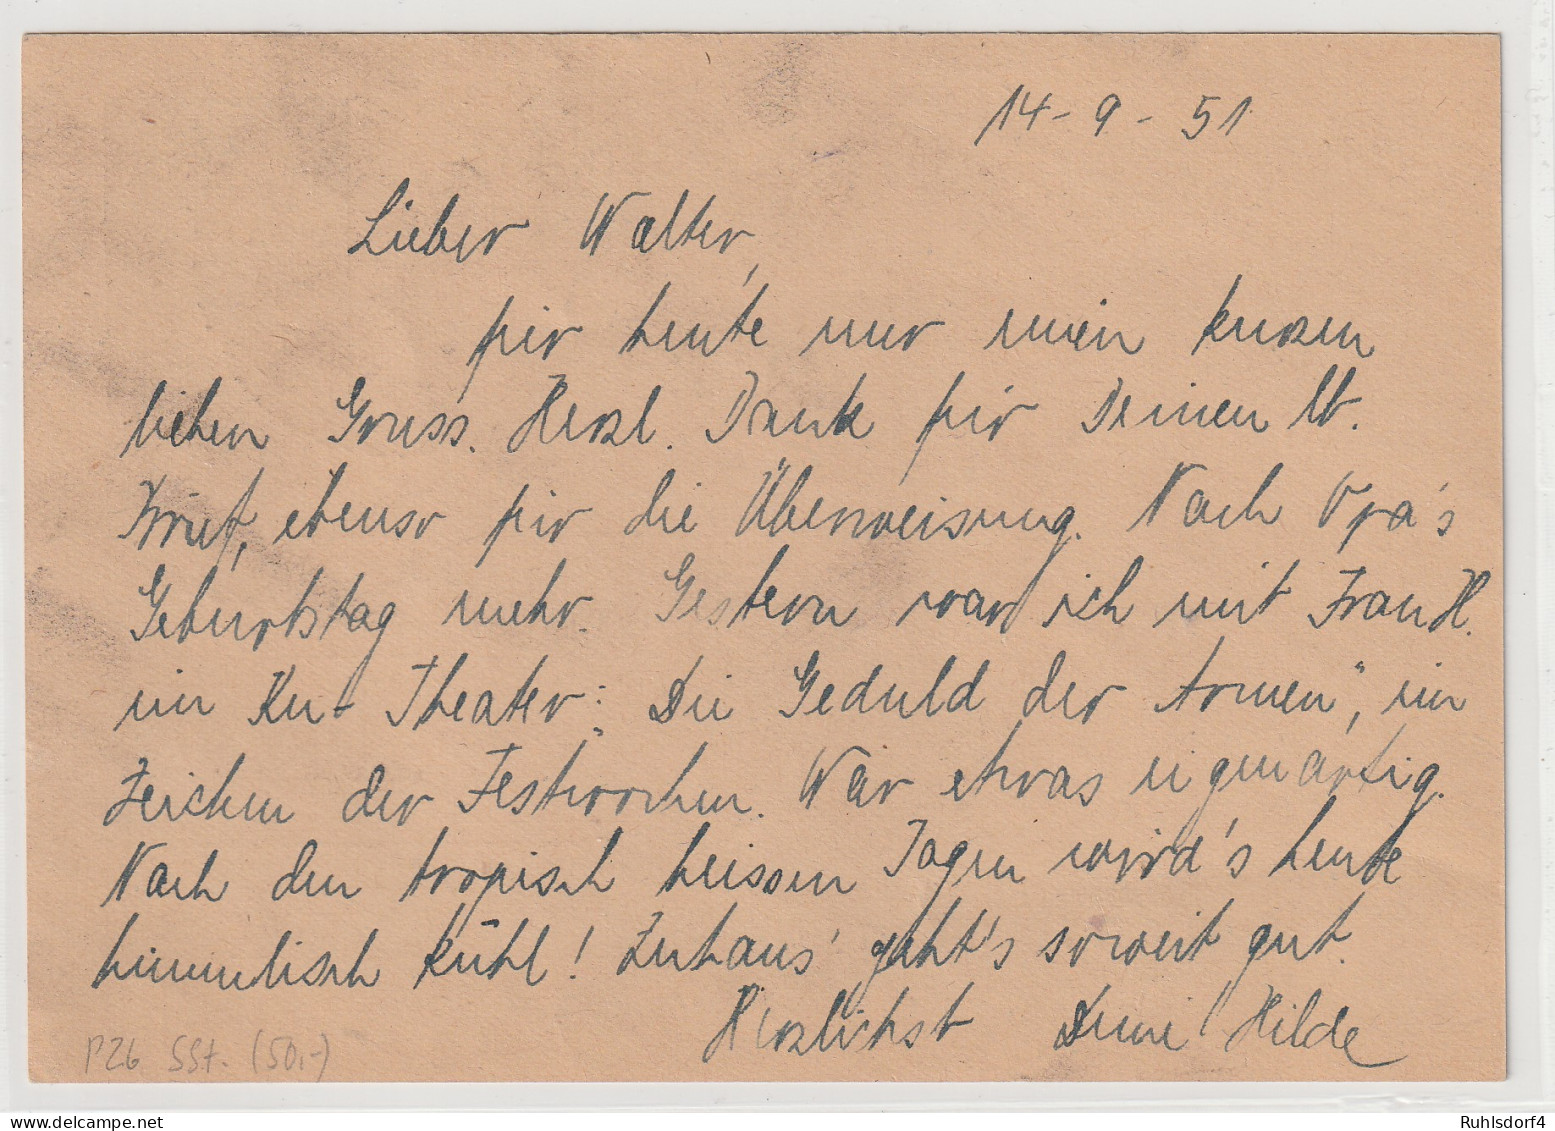 14-9-51
Lieber Walter,
für heute nur einen kurzen
lieben Gruss. Herzl. Dank für Deinen lb.
Brief, ebenso für die Überweisung. Nach Opa's
Geburtstag mehr. Gestern war ich mit Frau H.
im Ku-Theater: „Die Geduld der Armen", im
Zeichen der Festwochen. War etwas eigenartig.
Nach den tropisch heissen Tagen wird's heute
himmlisch kühl! Zuhaus' geht's soweit gut.
Herzlichst Deine Hilde
P26 SSt. (50,-)
Ruhlsdorf4